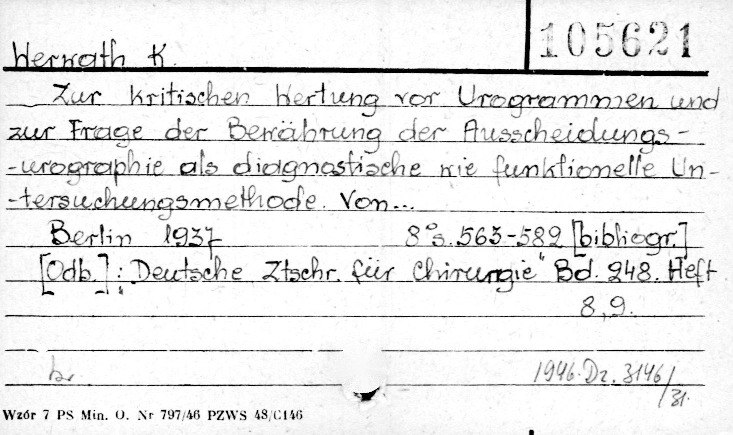 105621
Werwath K.
Zur kritischen Wertung vor Urogrammen und
zur Frage der Bewährung der Ausscheidungs-
-urographie als diagnostische wie funktionelle Un-
-tersuchungsmethode. Von...
Berlin 1937 8° s. 563-582 [bibliogr.]
[Odb.]: „Deutsche Ztschr. für Chirurgie" Bd. 248. Heft
8, 9.
br. 1946. Dz. 3146/31.
Wzór 7 PS Min. O. Nr 797/46 PZWS 48/C146